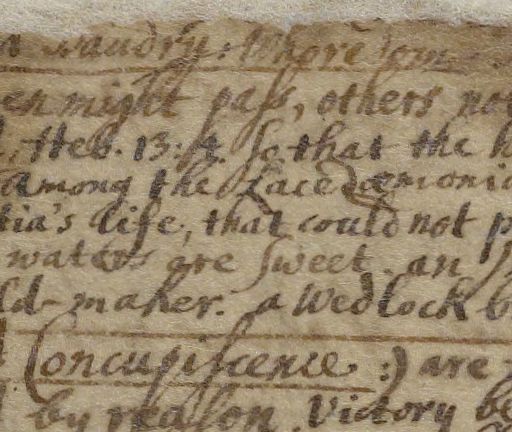 waudry: Whore'dom
en might pass, others not
Heb. 13:4. so that the
among the Lacedæmonia
tia's life, that could not p
waters are sweet. an
ld-maker. a Wedlock b
Concupiscence :) are
by reason. Victory be